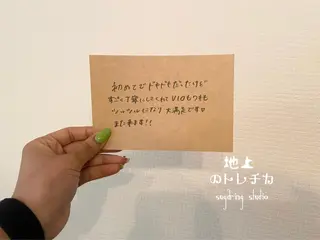 初めてでドキドキだったけど
すごく丁寧にしてくれてVIOもワキも
ツルツルになり大満足です♡
また来ます!!
地上
のトレチカ
sugaring studio